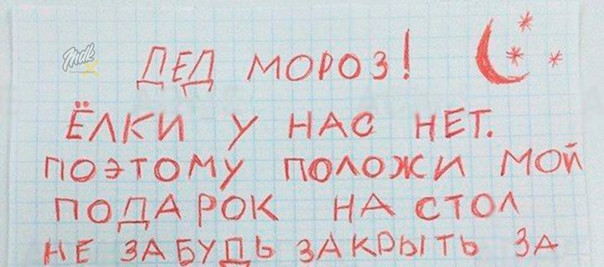 mdk
ДЕД МОРОЗ!
ЁЛКИ У НАС НЕТ.
ПОЭТОМУ ПОЛОЖИ МОЙ
ПОДАРОК НА СТОЛ
НЕ ЗАБУДЬ ЗАКРЫТЬ ЗА